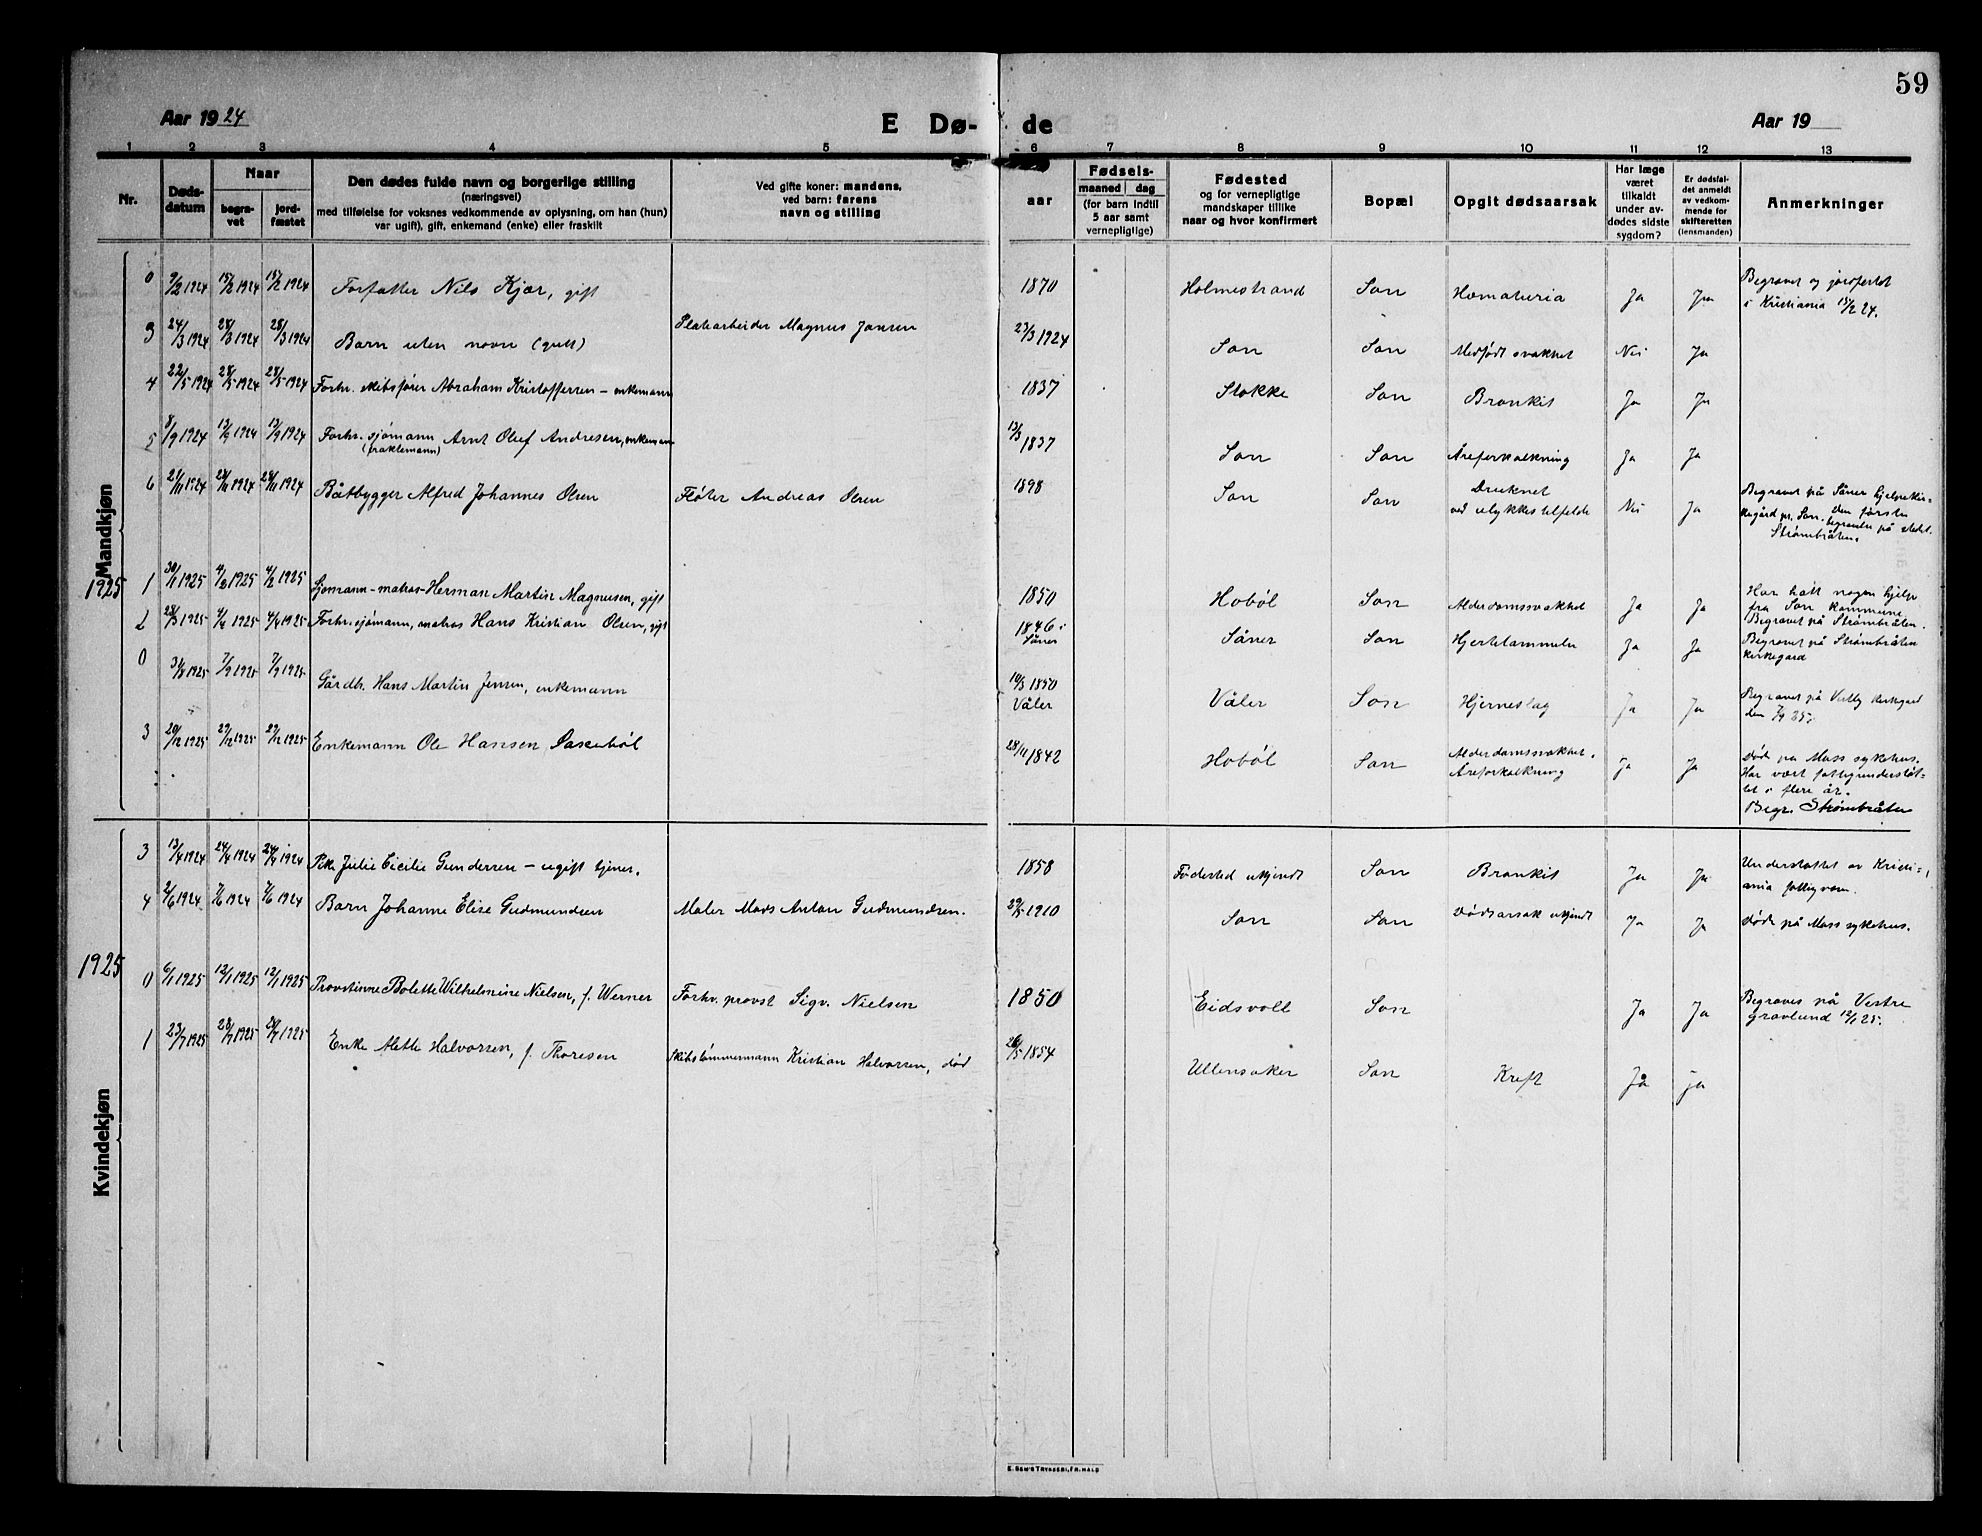 59
Aar 1924
E Dø-
de
Aar 19
1 2 3 4 5 6 7 8 9 10 11 12 13
Nr.
Døds-
datum
Naar
begra-
vet
jord-
fæstet
Den dødes fulde navn og borgerlige stilling
(næringsvei)
med tilføielse for voksnes vedkommende av oplysning, om han (hun)
var ugift), gift, enkemand (enke) eller fraskilt
Ved gifte koner: mandens,
ved barn: farens
navn og stilling
aar
Fødsels-
maaned dag
(for barn indtil
5 aar samt
vernepligtige)
Fødested
og for vernepligtige
mandskaper tillike
naar og hvor konfirmert
Bopæl
Opgit dødsaarsak
Har læge
været
tilkaldt
under av-
dødes sidste
sygdom?
Er dødsfal-
det anmeldt
av vedkom-
mende for
skifteretten
(lensmanden)
Anmerkninger
Mandkjøn
0 9/2 1924 15/2 1924 15/2 1924 Forfatter Nils Kjær, gift 1870 Holmestrand Son Hæmaturia Ja Ja Begravet og jordfestet
i Kristiania 15/2 24.
3 24/3 1924 28/3 1924 28/3 1924 Barn uten navn (gutt) Platearbeider Magnus Jansen 23/3 1924 Son Son Medfødt svakhet Nei Ja
4 22/5 1924 28/5 1924 28/5 1924 Forhv. skibsfører Abraham Kristoffersen – enkemann 1837 Stokke Son Bronkit Ja Ja
5 8/9 1924 13/9 1924 13/9 1924 Forhv. sjømann Arnt Oluf Andresen, enkemann
(fraktemann) 13/3 1837 Son Son Åreforkalkning Ja Ja
6 21/11 1924 28/11 1924 28/11 1924 Båtbygger Alfred Johannes Olsen Fløter Andreas Olsen 1898 Son Son Druknet
ved ulykkestilfelde Nei Ja Begravet på Såner hjelpekir-
kegård pr. Son. Den første
begravelse på stedet.
Strømbråten.
1925
1 30/1 1925 4/2 1925 4/2 1925 Sjømann – matros – Herman Martin Magnusen, gift 1850 Hobøl Son Alderdomssvakhet Ja Ja Har hatt nogen hjelp
fra Son kommune
Begravet på Strømbråten.
2 28/3 1925 4/4 1925 4/4 1925 Forhv. sjømann, matros Hans Kristian Olsen, gift 1846 i
Såner Såner Son Hjertelammelse Ja Ja Begravet på Strømbråten
kirkegård
0 31/8 1925 7/9 1925 7/9 1925 Gårdbr. Hans Martin Jensen, enkemann 10/3 1850
Våler Våler Son Hjerneslag Ja Ja Begravet på Vestby kirkegård
den 7/9 25.
3 20/12 1925 27/12 1925 27/12 1925 Enkemann Ole Hansen Saxebøl 28/11 1842 Hobøl Son Alderdomssvakhet.
Åreforkalkning Ja Ja Døde på Moss sykehus.
Har vært fattigunderstøt-
tet i flere år.
Begr. Strømbråten
Kvindekjøn
3 13/4 1924 24/4 1924 24/4 1924 Pike Julie Cicilie Gundersen – ugift tjener. 1858 Fødested ukjendt Son Bronkit Ja Ja Understøttet av Kristi-
ania fattigvesen.
4 2/6 1924 7/6 1924 7/6 1924 Barn Johanne Elise Gudmundsen Maler Mads Anton Gudmundsen. 29/5 1910 Son Son Dødsarsak ukjendt Ja Ja Døde på Moss sykehus.
1925
0 6/1 1925 12/1 1925 12/1 1925 Provstinne Bolette Wilhelmine Nielsen, f. Werner Forhv. provst Sigv. Nielsen 1850 Eidsvoll Son Ja Ja Begraves på Vestre
gravlund 12/1 25.
1 23/7 1925 28/7 1925 28/7 1925 Enke Alette Halvorsen, f. Thoresen Skibstømmermann Kristian Halvorsen, død 26/5 1854 Ullensaker Son Kreft Ja ja
E. SEM'S TRYKKERI, FR.HALD